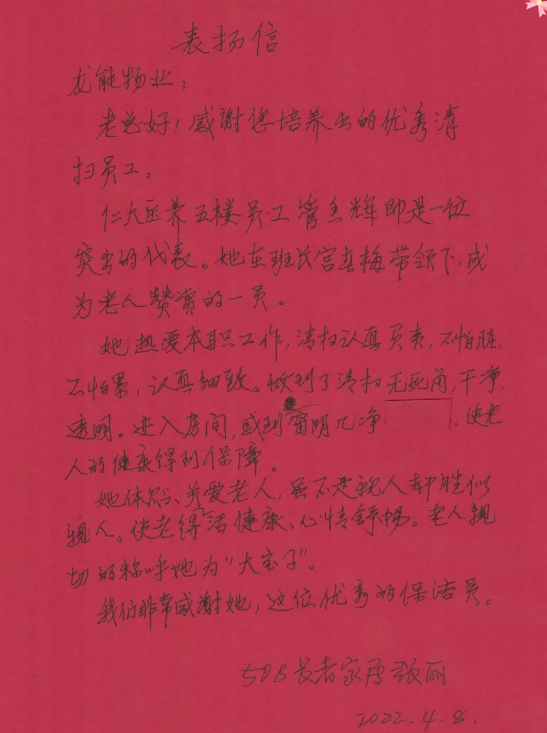 表扬信
龙能物业：
老总好！感谢您培养出的优秀清
扫员工。
仁大医养五楼员工管玉辉即是一位
突出的代表。她在班长宫真梅带领下，成
为老人赞赏的一员。
她热爱本职工作，清扫认真负责，不怕脏，
不怕累，认真细致。做到了清扫无死角，干净
透明。进入房间，感到窗明几净，使老
人的健康得到保障。
她体贴、关爱老人，虽不是亲人却胜似
亲人。使老得活健康、心情舒畅。老人亲
切的称呼她为“大宝子”。
我们非常感谢她，这位优秀的保洁员。
508长者家属张丽
2022.4.8.